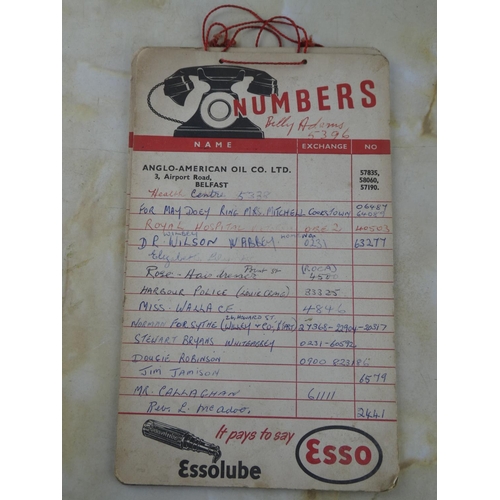 NUMBERS
Billy Adams
5396
NAME EXCHANGE NO
ANGLO-AMERICAN OIL CO. LTD. 57835,
3, Airport Road, 58060,
BELFAST 57190.
Health Centre 5328
FOR MAY DOEY RING MRS MITCHELL COOKSTOWN 06487
ROYAL HOSPITAL 40503
D.P. WILSON WARREN 0231 63277
Rose - Hawdrence 4580
HARBOUR POLICE 33325
MISS. WALLACE 4846
NORMAN FORSYTHE 27365-22904-20517
STEWART BRYANS WHITEABBEY 0231-60592
DOUGIE ROBINSON 0900 823186
JIM JAMISON 6579
MR. CALLAGHAN 61111
Rev. L. McAdoo. 2441
It pays to say
Essolube
Esso